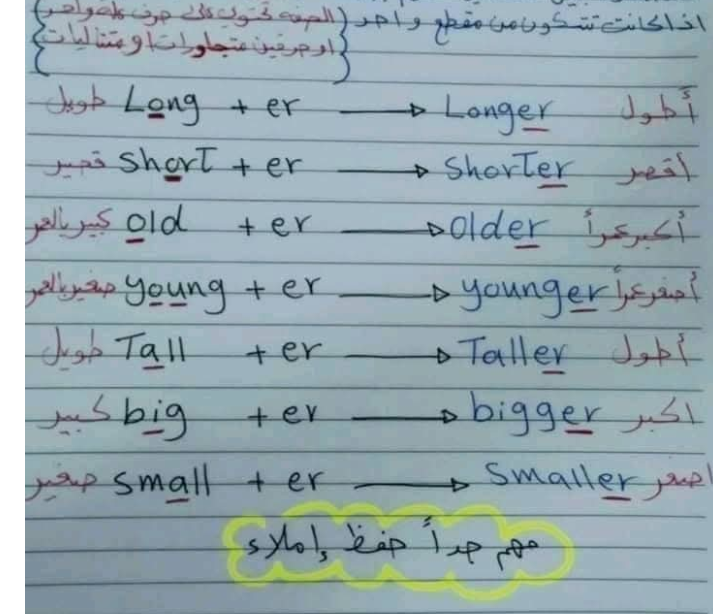 اذا كانت تتكون من مقطع واحد (الصفه تحتوي على حرف عله واحد)
او حرفين متجاورات او متتاليات
طويل Long + er → Longer أطول
قصير Short + er → Shorter أقصر
كبير بالعمر old + er → older أكبر عمراً
صغير بالعمر young + er → younger أصغر عمراً
طويل Tall + er → Taller أطول
كبير big + er → bigger اكبر
صغير small + er → Smaller اصغر
مهم جداً حفظ إملاء